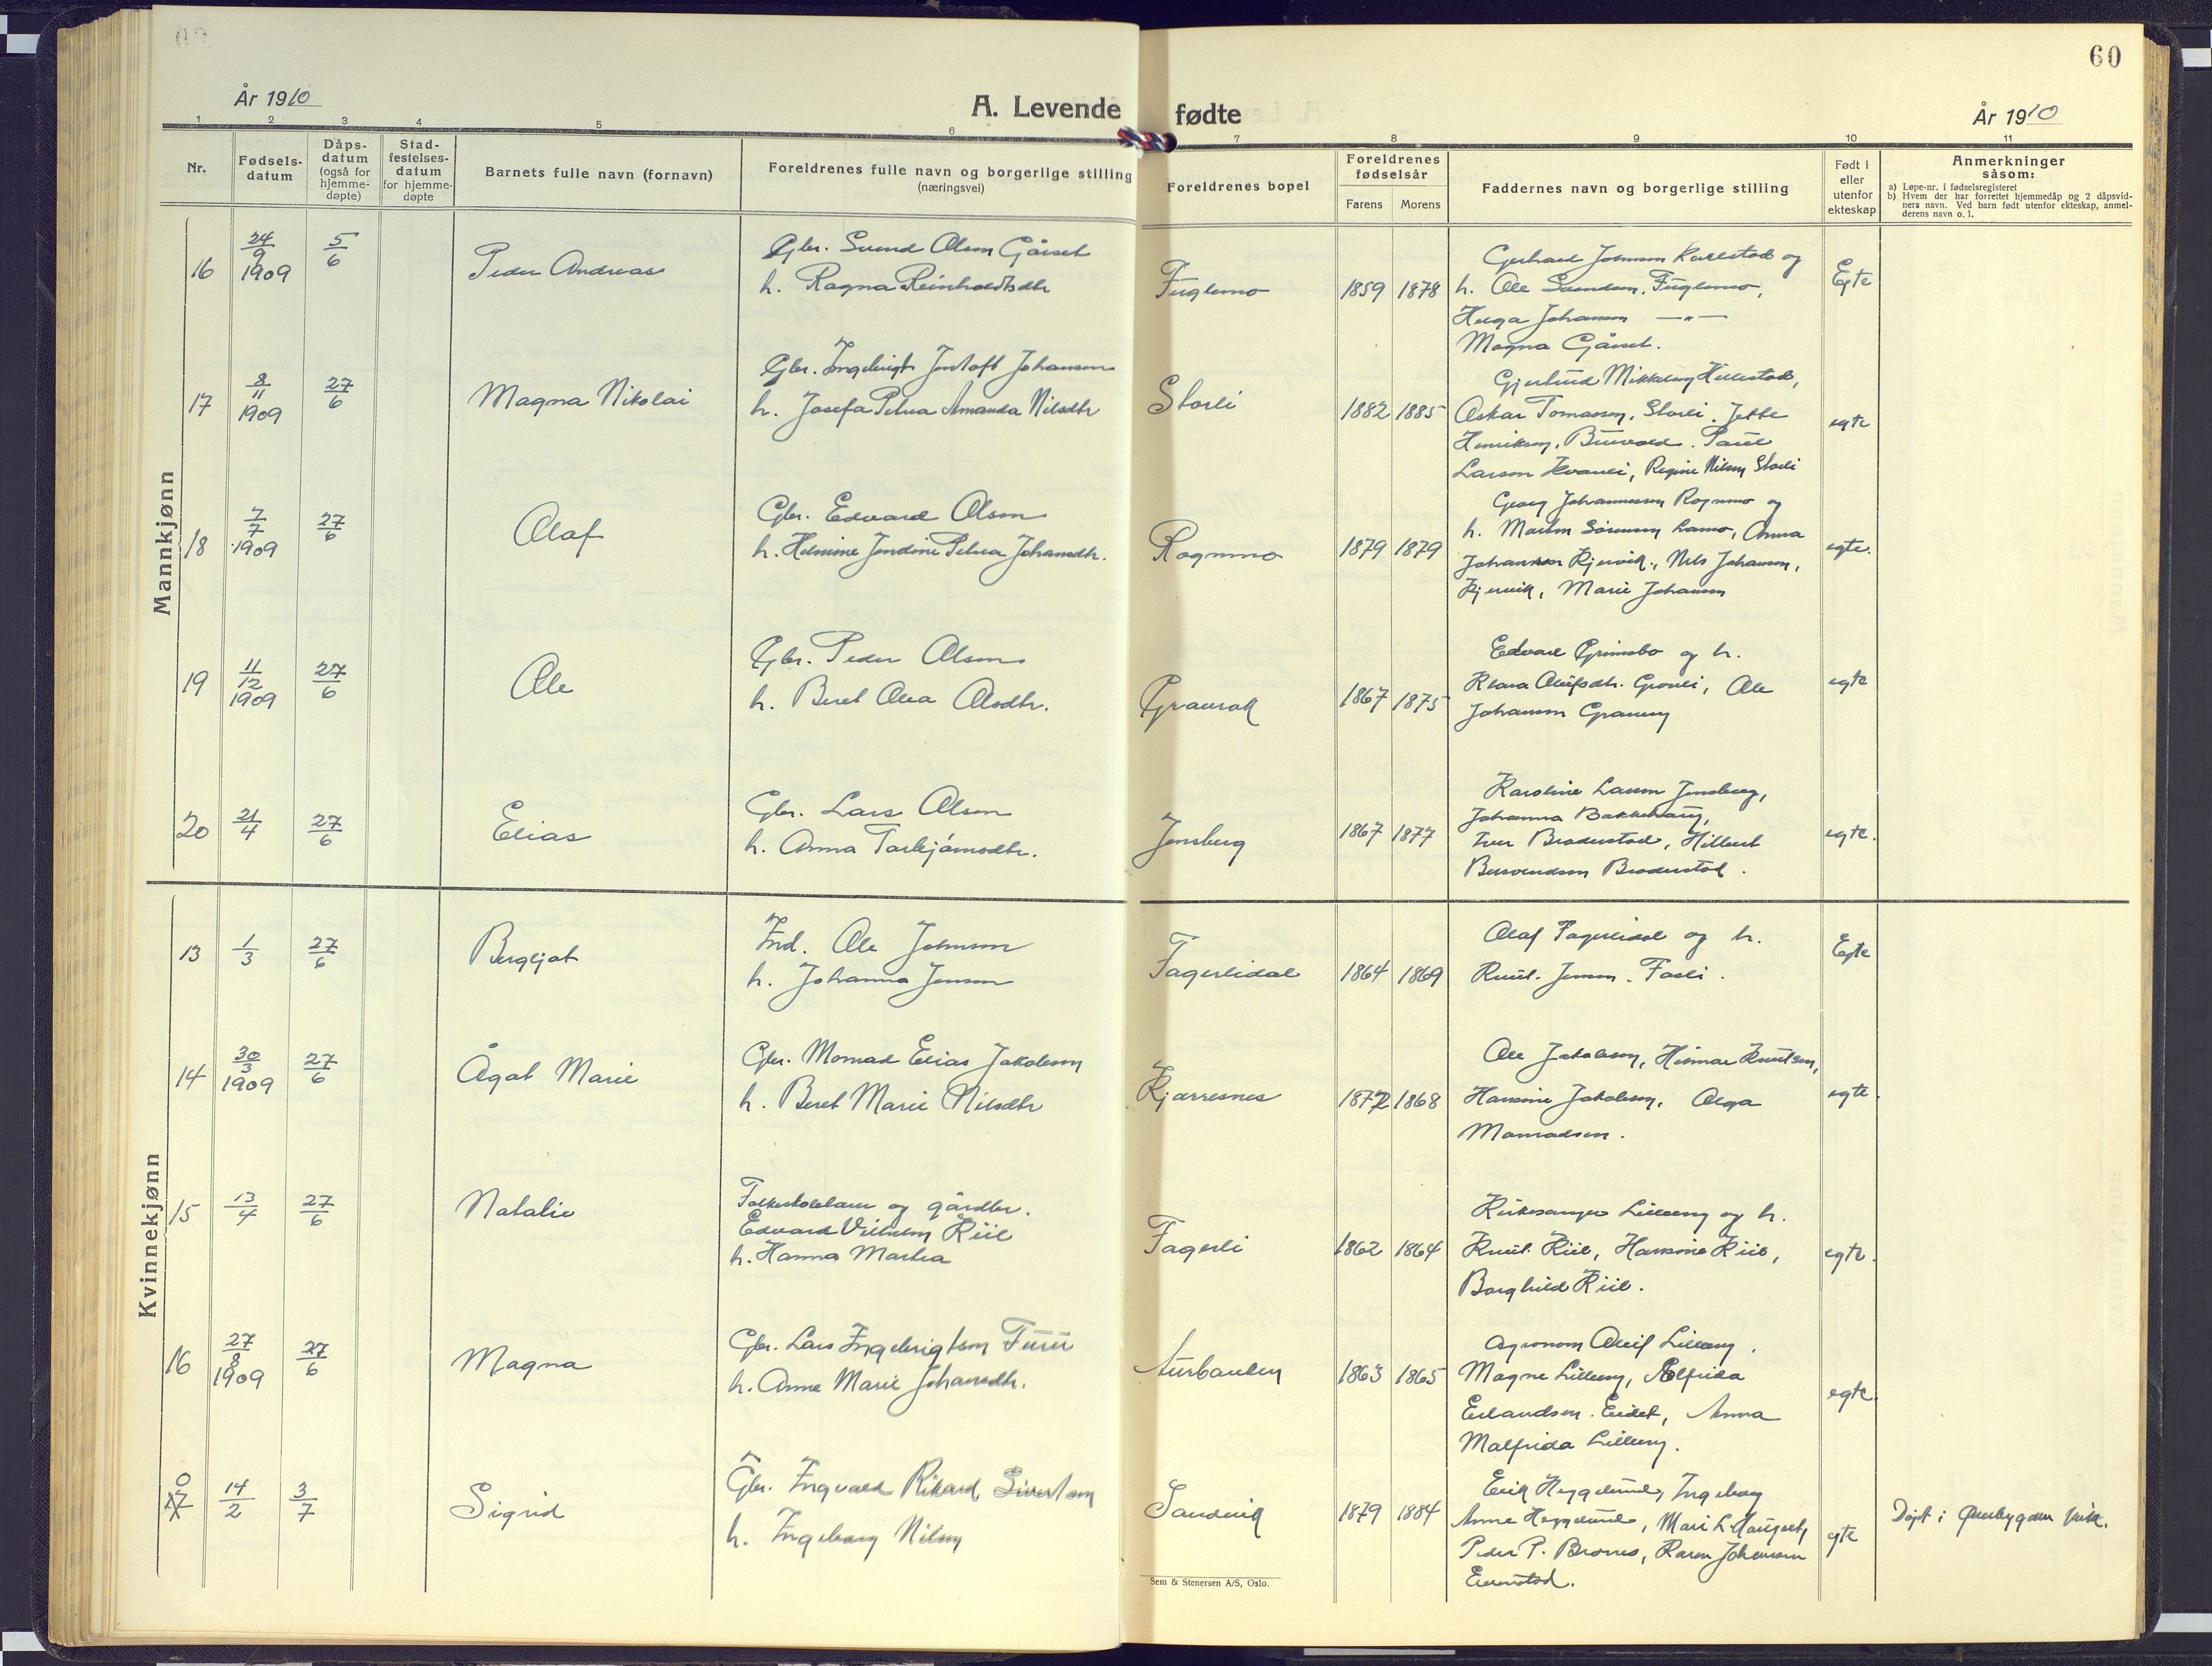 År 1910
A. Levende fødte
År 1910
60
1 2 3 4 5 6 7 8 9 10 11
Nr.
Fødselsdatum
Dåpsdatum (også for hjemmedøpte)
Stadfestelsesdatum for hjemmedøpte
Barnets fulle navn (fornavn)
Foreldrenes fulle navn og borgerlige stilling (næringsvei)
Foreldrenes bopel
Foreldrenes fødselsår
Farens Morens
Faddernes navn og borgerlige stilling
Født i eller utenfor ekteskap
Anmerkninger såsom:
a) Løpe-nr. i fødselsregisteret
b) Hvem der har forrettet hjemmedåp og 2 dåpsvidners navn. Ved barn født utenfor ekteskap, anmelderens navn o. l.
Mannkjønn
16 24/9 1909 5/6 Peder Andreas
Gbr. Svend Olsen Gåiset
h. Ragna Reinholdtsdtr
Fuglemo 1859 1878
Gerhard Johnsen Karlstad og
h. Ole Svendsen, Fuglemo,
Helga Johansen —"—
Magna Gåiset.
Egte
17 8/11 1909 27/6 Magna Nikolai
Gbr. Ingebrigt Jentoft Johansen
h. Josefa Petrea Amanda Nilsdtr
Storli 1882 1885
Gjertrud Mikkelsen
Oskar Tomassen, Storli. Jette
Henriksen, Paul
Larsen Regine Nilsen Storli
egte
18 7/7 1909 27/6 Olaf
Gbr. Edvard Olsen
h. Helmine Jendine Petrea Johansdtr.
Rognmo 1879 1879
Georg Johannessen Rognmo og
h. Martin Sørensen Lamo, Anna
Johansen Kjervik., Nils Johansen,
Kjervik, Marie Johansen
egte.
19 11/12 1909 27/6 Ole
Gbr. Peder Olsen
h. Beret Olea Olsdtr.
Gravrok 1867 1875
Edvard Grimsbo og h.
Klara Olufsdtr. Gronli, Ole
Johansen
egte
20 21/4 27/6 Elias
Gbr. Lars Olsen
h. Anna Torbjörnsdtr.
Jensberg 1867 1877
Karoline Larsen Jensberg,
Johanna Bakkehaug,
Iver Braderstad, Hilbert
Bersvendsen Braderstad.
egte.
Kvinnekjønn
13 1/3 27/6 Bergljot
Ind. Ole Johnsen
h. Johanna Jensen
Fagerlidal 1864 1869
Olaf Fagerlidal og h.
Knut Jensen. Fosli.
Egte
14 30/3 1909 27/6 Ågot Marie
Gbr. Monrad Elias Jakobsen
h. Beret Marie Nilsdtr
Kjærresnes 1872 1868
Ole Jakobsen, Hilmar Knutsen,
Hansine Jakobsen, Olga
Monradsen.
egte.
15 13/4 27/6 Natalie
Folkeskolelærer og gårdbr.
Edvard Vilhelm Kiil
h. Hanna Martea
Fagerli 1862 1864
Kirkesanger Lilleeng og h.
Knut Kiil, Hansine Kiil,
Borghild Kiil.
egte.
16 27/8 1909 27/6 Magna
Gbr. Lars Ingebrigtsen Furu
h. Anne Marie Johansdtr.
1863 1865
Agronom Oluf Lilleeng,
Magne Lilleeng, Alfrida
Erlandsen. Eidet, Anna
Malfrida Lilleeng.
egte.
0
17 14/2 3/7 Sigrid
Gbr. Ingvald Rikard Sivertsen
h. Ingeborg Nilsen
Sandvik 1879 1884
Erik Heggelund, Ingeborg
Anne Heggelund, Mari L.
Peder P. Karen Johansen
egte
Døpt i Øverbygden kirk.
Sem & Stenersen A/S, Oslo.